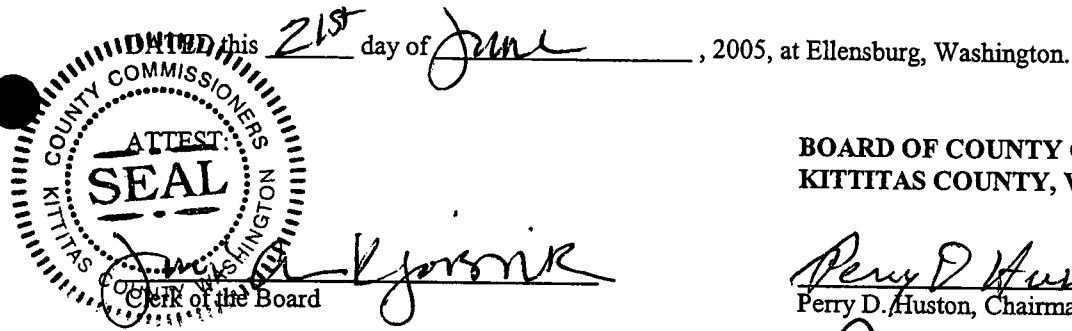 DATED, this 21st day of June, 2005, at Ellensburg, Washington.
COUNTY COMMISSIONERS
KITTITAS COUNTY WASHINGTON
ATTEST:
SEAL
BOARD OF COUNTY
KITTITAS COUNTY,
Clerk of the Board
Perry D Hus
Perry D. Huston, Chairma